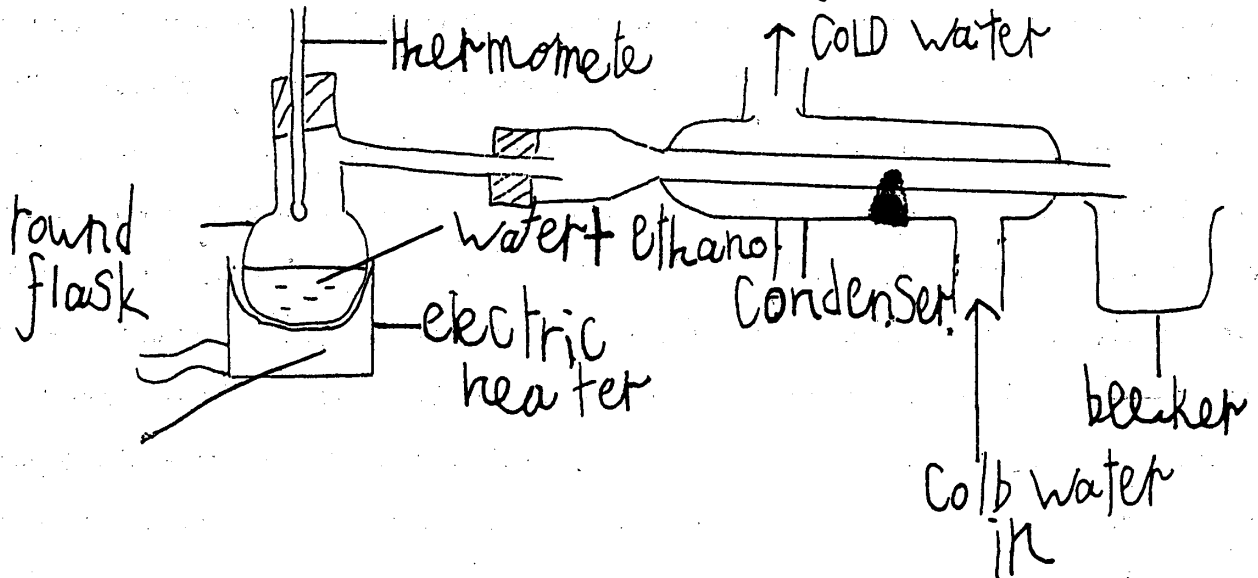 COLD water
thermomete
round
flask
water+ ethanol
condenser.
electric
heater
beeker
Colb water
in